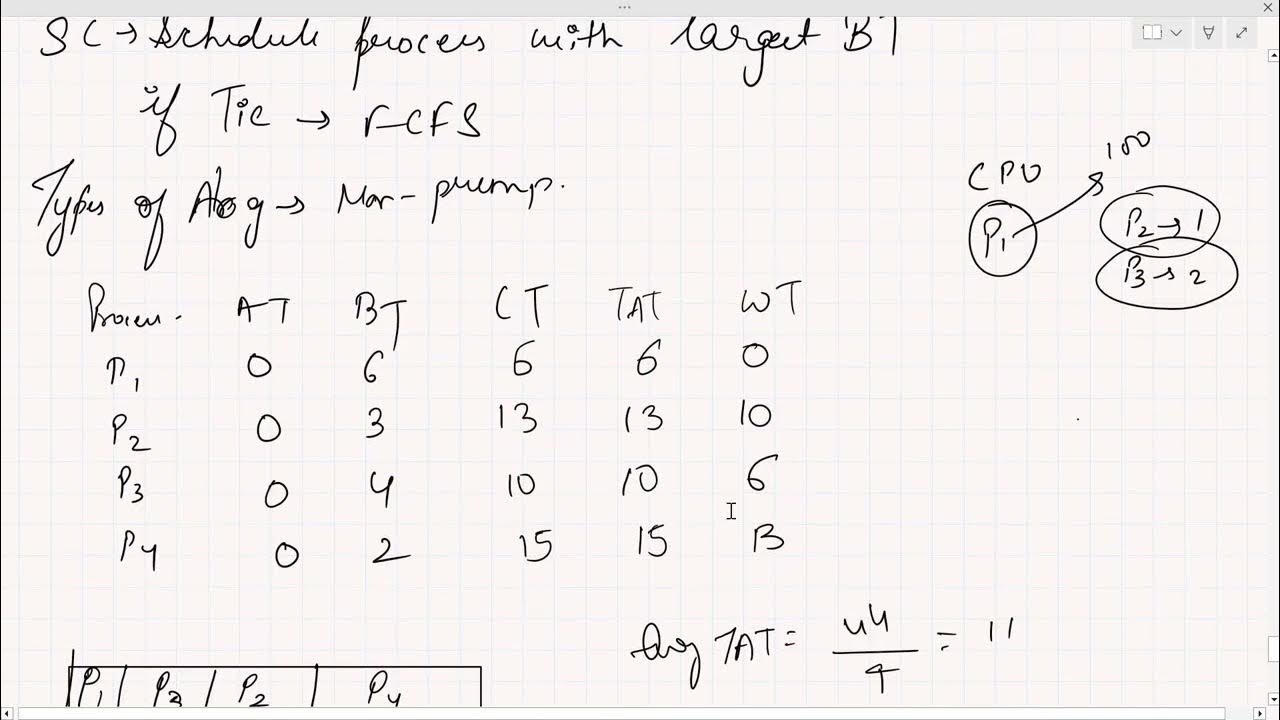 SC → Schedule process with largest BT
if Tie → FCFS
Types of Alog → Non-prump.
CPU 100
P1
P2 → 1
P3 → 2
Process. AT BT CT TAT WT
P1 0 6 6 6 0
P2 0 3 13 13 10
P3 0 4 10 10 6
P4 0 2 15 15 13
Avg TAT = 44/4 = 11
P1 P3 P2 P4